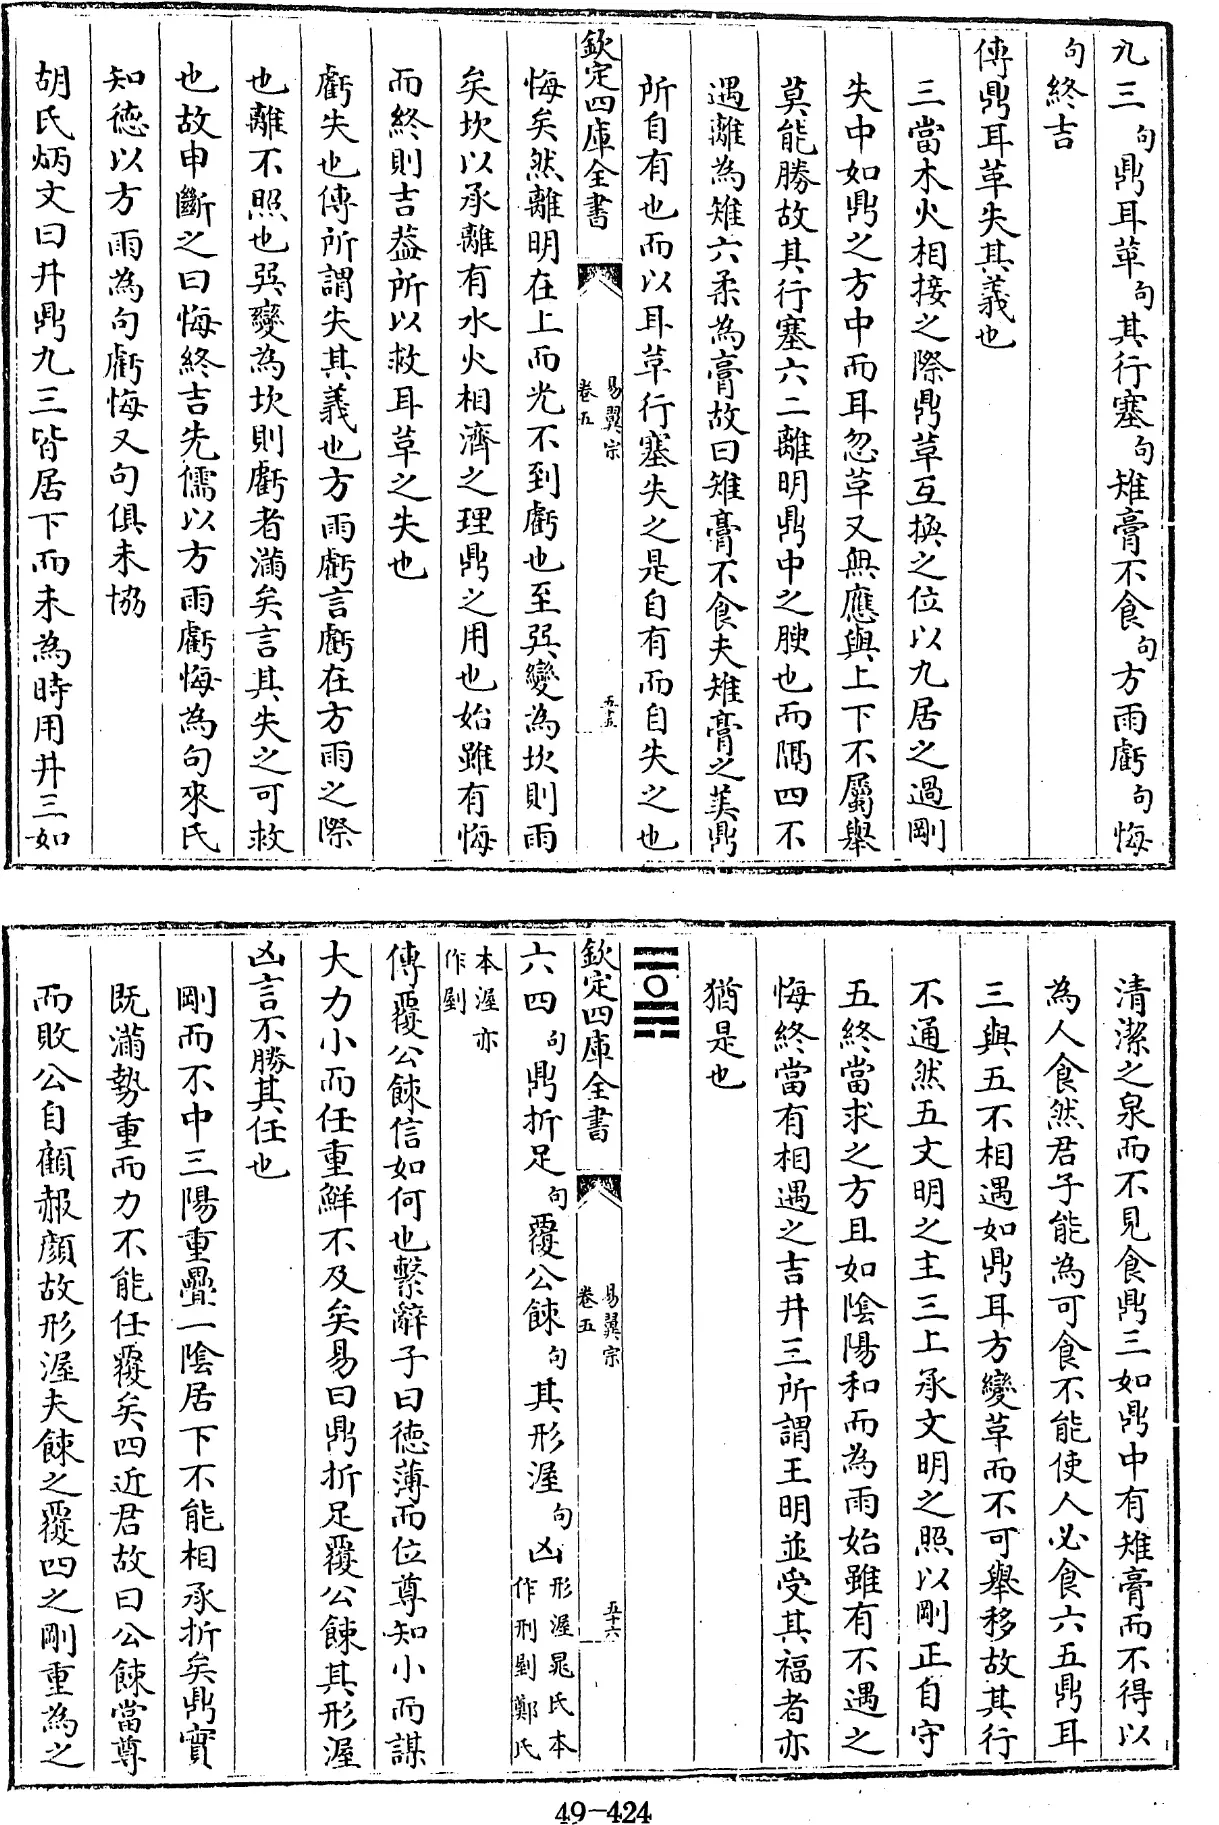 九三句鼎耳革句其行塞句雉膏不食句方雨虧句悔
句終吉
傳鼎耳革失其義也
三當木火相接之際鼎革互換之位以九居之過剛
失中如鼎之方中而耳忽革又無應與上下不屬舉
莫能勝故其行塞六二離明鼎中之腴也而隔四不
遇離為雉六柔為膏故曰雉膏不食夫雉膏之美鼎
所自有也而以耳革行塞失之是自有而自失之也
欽定四庫全書
易翼宗
卷五
五十五
悔矣然離明在上而光不到虧也至巽變為坎則雨
矣坎以承離有水火相濟之理鼎之用也始雖有悔
而終則吉葢所以救耳革之失也
虧失也傳所謂失其義也方雨虧言虧在方雨之際
也離不照也巽變為坎則虧者滿矣言其失之可救
也故申斷之曰悔終吉先儒以方雨虧悔為句來氏
知德以方雨為句虧悔又句俱未協
胡氏炳文曰井鼎九三皆居下而未為時用井三如
清潔之泉而不見食鼎三如鼎中有雉膏而不得以
為人食然君子能為可食不能使人必食六五鼎耳
三與五不相遇如鼎耳方變革而不可舉移故其行
不通然五文明之主三上承文明之照以剛正自守
五終當求之方且如陰陽和而為雨始雖有不遇之
悔終當有相遇之吉井三所謂王明並受其福者亦
猶是也
欽定四庫全書
易翼宗
卷五
五十六
六四句鼎折足句覆公餗句其形渥句凶形渥晁氏本作刑剭鄭氏
本渥亦作剭
傳覆公餗信如何也繫辭子曰德薄而位尊知小而謀
大力小而任重鮮不及矣易曰鼎折足覆公餗其形渥
凶言不勝其任也
剛而不中三陽重疊一陰居下不能相承折矣鼎實
既滿勢重而力不能任覆矣四近君故曰公餗當尊
而敗公自顧赧顏故形渥夫餗之覆四之剛重為之
49-424